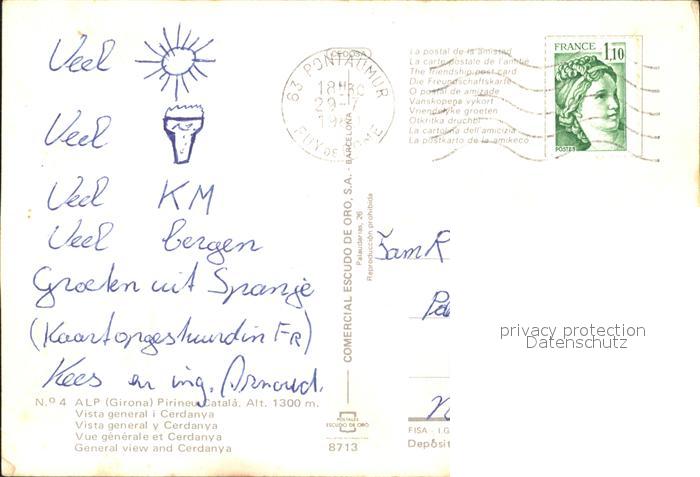 Veel
Veel
Veel KM
Veel bergen
Groeten uit Spanje
(Kaart opgestuurd in FR)
Kees en ing. Arnoud.
N.º 4 ALP (Girona) Pirineu Català. Alt. 1300 m.
Vista general i Cerdanya
Vista general y Cerdanya
Vue générale et Cerdanya
General view and Cerdanya
CEDOSA
COMERCIAL ESCUDO DE ORO, S.A. - BARCELONA
Palaudarias, 26
Reproducción prohibida
POSTALES
ESCUDO DE ORO
8713
63 PONTAUMUR
18H
29-7
PUY DE DOME
La postal de la amistad
La carte postale de l'amitié
The friendship post card
Die Freundschaftskarte
O postal de amizade
Vanskopens vykort
Vriendelyke groeten
Otkritka druchbi
La cartolina dell'amicizia
La postkarto de la amikeco
FRANCE 1,10
POSTES
Fam R
FISA - I.G.
Depósit
privacy protection
Datenschutz